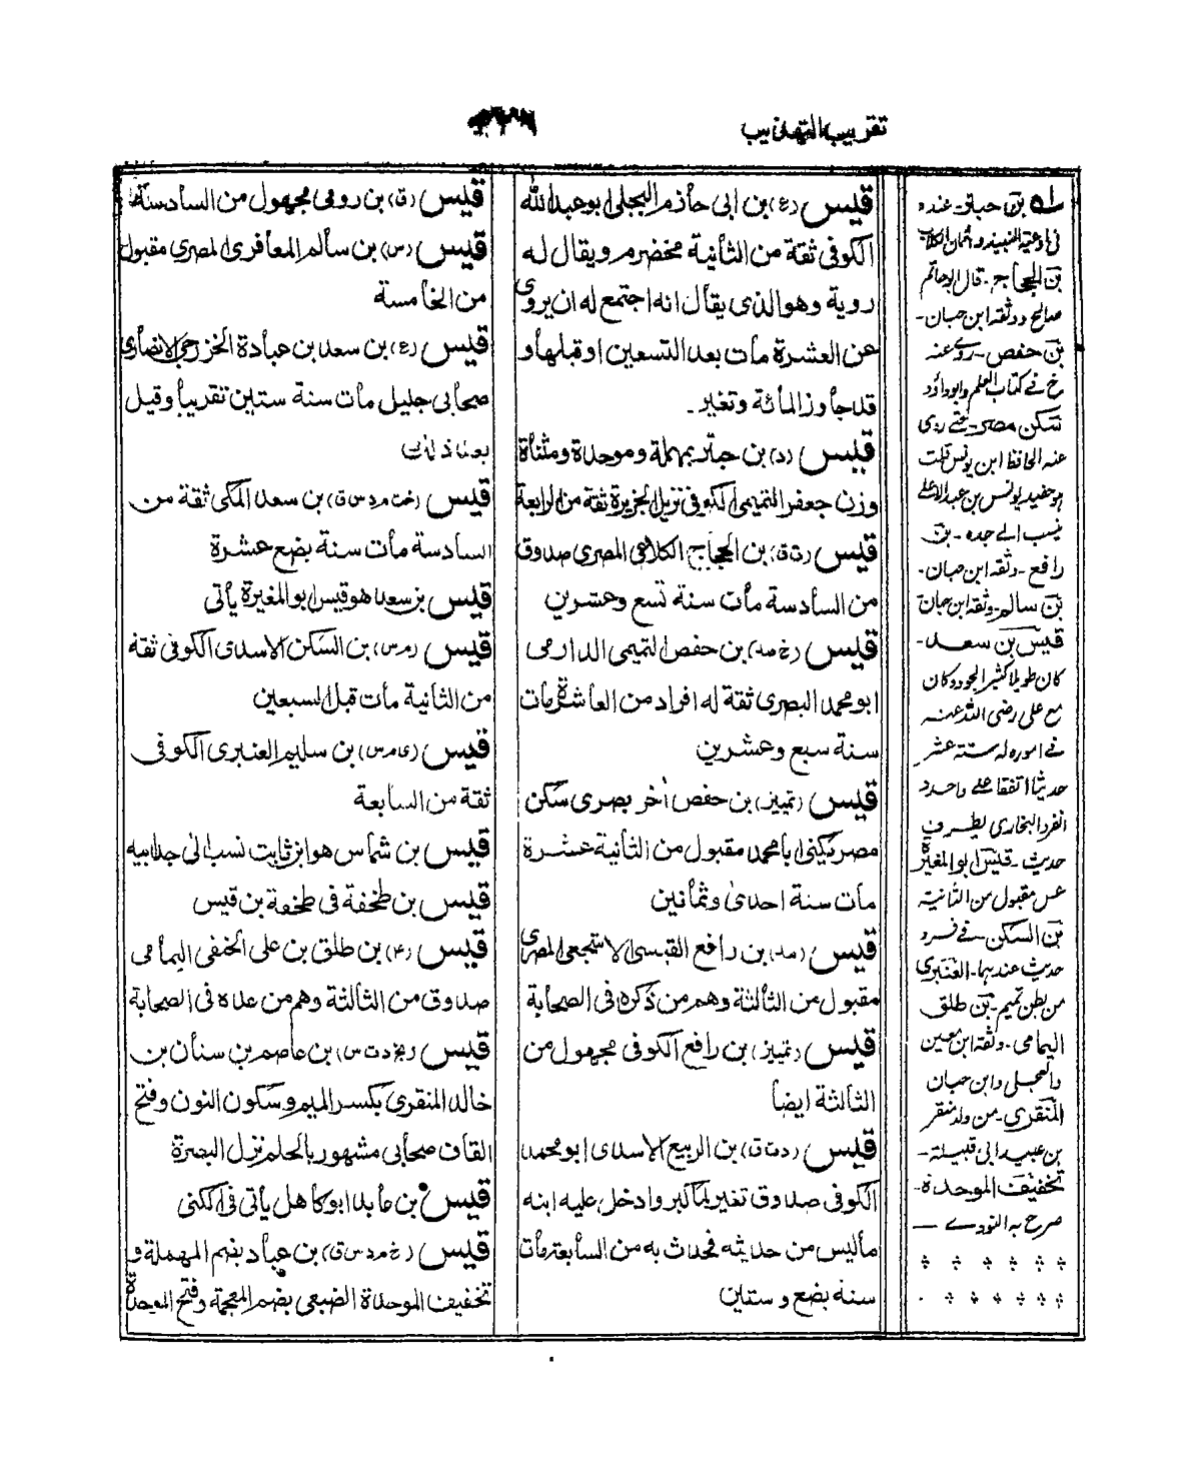 تقريب التهذيب
قيس (ع) بن ابى حازم البجلى ابو عبدالله
الكوفى ثقة من الثانية مخضرم ويقال له
روية وهوالذى يقال انه اجتمع له ان يروى
عن العشرة مات بعد التسعين اوقبلها و
قد جاوز المائة وتغير-
قيس (د) بن حبتر بمهملة وموحدة ومثناة
وزن جعفر التميمى الكوفى نزيل الجزيرة ثقة من الرابعة
قيس (ت ق) بن الحجاج الكلاعى المصرى صدوق
من السادسة مات سنة تسع وعشرين
قيس (خ مد) بن حفص التميمى الدارمى
ابو محمد البصرى ثقة له افراد من العاشرة مات
سنة سبع وعشرين
قيس (تمييز) بن حفص اخر بصرى سكن
مصر يكنى ابا محمد مقبول من الثانية عشرة
مات سنة احدى وثمانين
قيس (مد) بن رافع القيسى الاشجعى المصرى
مقبول من الثالثة وهم من ذكره فى الصحابة
قيس (تمييز) بن رافع الكوفى مجهول من
الثالثة ايضا
قيس (د ت ق) بن الربيع الاسدى ابو محمد
الكوفى صدوق تغير لما كبر وادخل عليه ابنه
ماليس من حديثه فحدث به من السابعة مات
سنة بضع وستين
قيس (ق) بن رومى مجهول من السادسة
قيس (س) بن سالم المعافرى المصرى مقبول
من الخامسة
قيس (ع) بن سعد بن عبادة الخزرجى الانصارى
صحابى جليل مات سنة ستين تقريبا وقيل
بعد ذلك
قيس (خت م د س ق) بن سعد المكى ثقة من
السادسة مات سنة بضع عشرة
قيس بن سعد هو قيس ابو المغيرة يأتى
قيس (م س) بن السكن الاسدى الكوفى ثقة
من الثانية مات قبل السبعين
قيس (ى م س) بن سليم العنبرى الكوفى
ثقة من السابعة
قيس بن شماس هو ابن ثابت نسب الى جد ابيه
قيس بن طخفة فى طخفة بن قيس
قيس (٤) بن طلق بن على الحنفى اليمامى
صدوق من الثالثة وهم من عده فى الصحابة
قيس (بخ د ت س) بن عاصم بن سنان بن
خالد المنقرى بكسر الميم وسكون النون وفتح
القاف صحابى مشهور بالحلم نزل البصرة
قيس بن عابد ابو كاهل يأتى فى الكنى
قيس (خ م د س ق) بن عباد بضم المهملة و
تخفيف الموحدة الضبعى بضم المعجمة وفتح الموحدة
بن حبتر- عنده
بن الحجاج- قال ابو حاتم
صالح ووثقه ابن حبان-
بن حفص- روى عنه
خ فى كتاب العلم وابو داؤد
سكن مصر- روى
عنه الحافظ ابن يونس قلت
هو حفيد يونس بن عبد الاعلى
نسب الى جده- بن
رافع- وثقه ابن حبان-
بن سالم- وثقه ابن حبان
قيس بن سعد-
كان طويلا كثير الجود وكان
مع على رضى الله عنه
فى اموره له ستة عشر
حديثا اتفقا على واحد و
انفرد البخارى بطرف
حديث- قيس ابو المغيرة
مقبول من الثانية
بن السكن- فى فرد
حديث عندهما- العنبرى
من بطن تميم- بن طلق
اليمامى- وثقه ابن معين
والعجلى وابن حبان
المنقرى- من ولد منقر
بن عبيد ابى قبيلة-
تخفيف الموحدة-
صرح به النووى